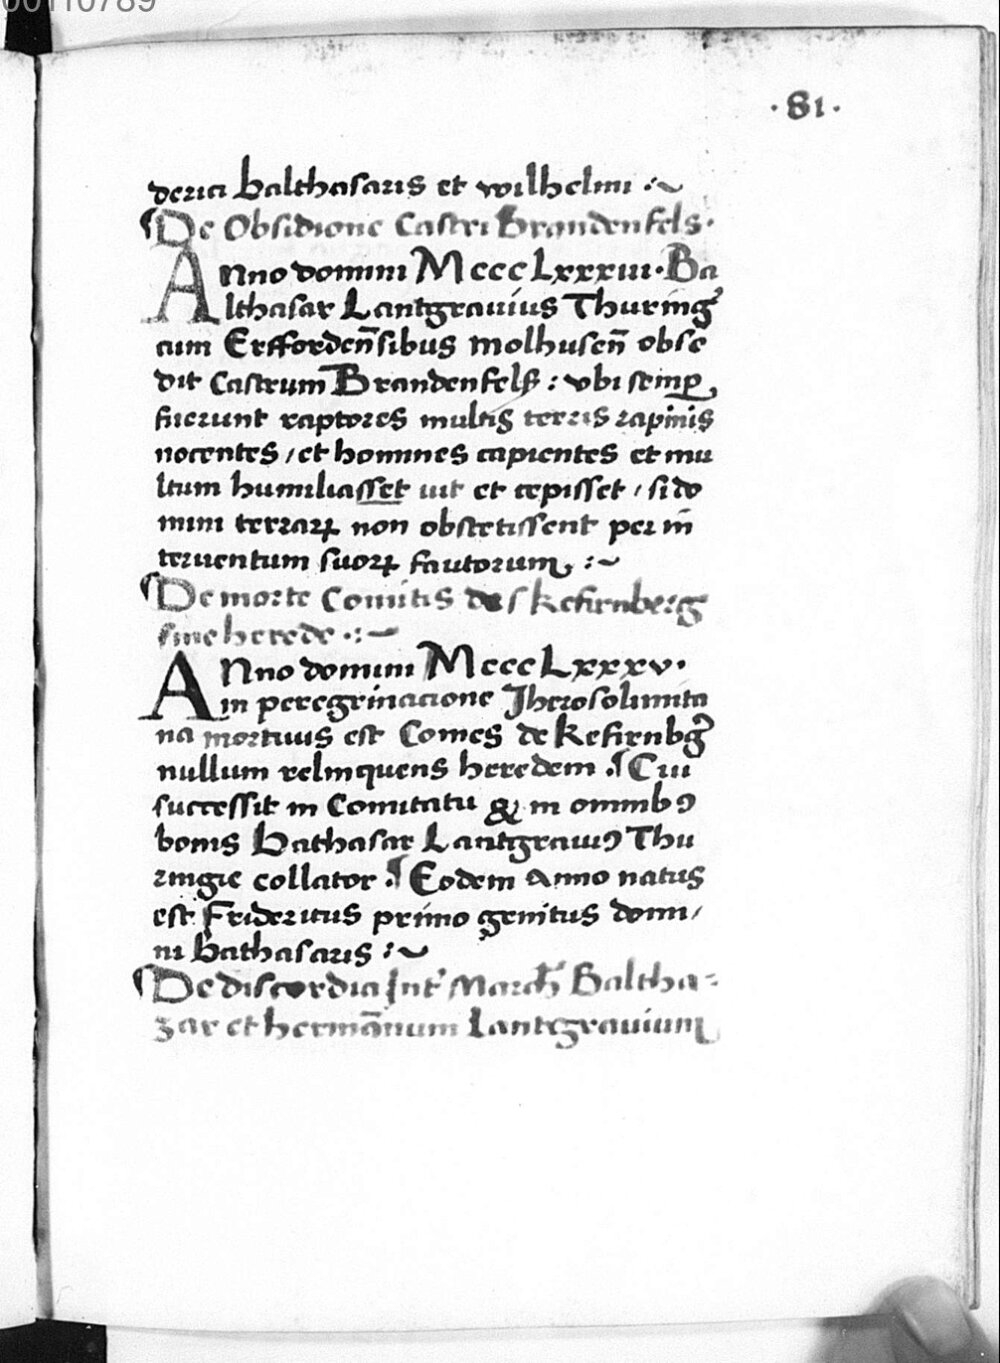 00110789
·81·
derici balthasaris et wilhelmi :~
¶De Obsidione Castri Brandenfels·
Anno domini McccLxxxiii·Ba
lthasar Lantgrauius Thuring̉
cum Erffordeñsibus molhuseñ obse
dit Castrum Brandenfelß : vbi semꝑ
fuerunt raptores multis terris rapinis
nocentes / et homines capientes et mu
ltum humiliasset uit et cepisset / si do
mini terrarꝝ non obstetissent per in̄
teruentum suorꝝ fautorum :~
¶De morte Comitis des kefirnberg
sine herede ·:~
ANno domini MccclLxxxv·
in peregrinacione Jherosolimita
na mortuus est Comes de kefirnbg̉
nullum relinquens heredem ·¶Cui
successit in Comitatu & in omnibꝯ
bonis bathasar Lantgrauiꝯ Thu
ringie collator ·¶Eodem anno natus
est Fridericus primo genitus domi/
ni bathasaris :~
¶De discordia Int̉ March̄ Baltha-
zar et hermānum Lantgrauium